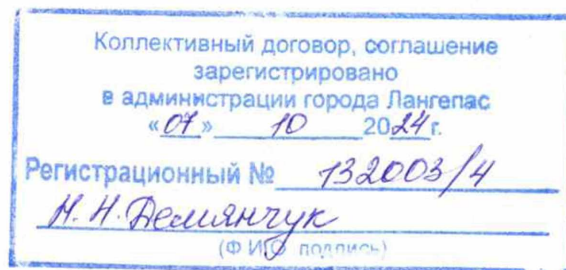 Коллективный договор, соглашение
зарегистрировано
в администрации города Лангепас
«07» 10 2024г.
Регистрационный № 132003/4
Н.Н. Демянчук
(Ф И О подпись)